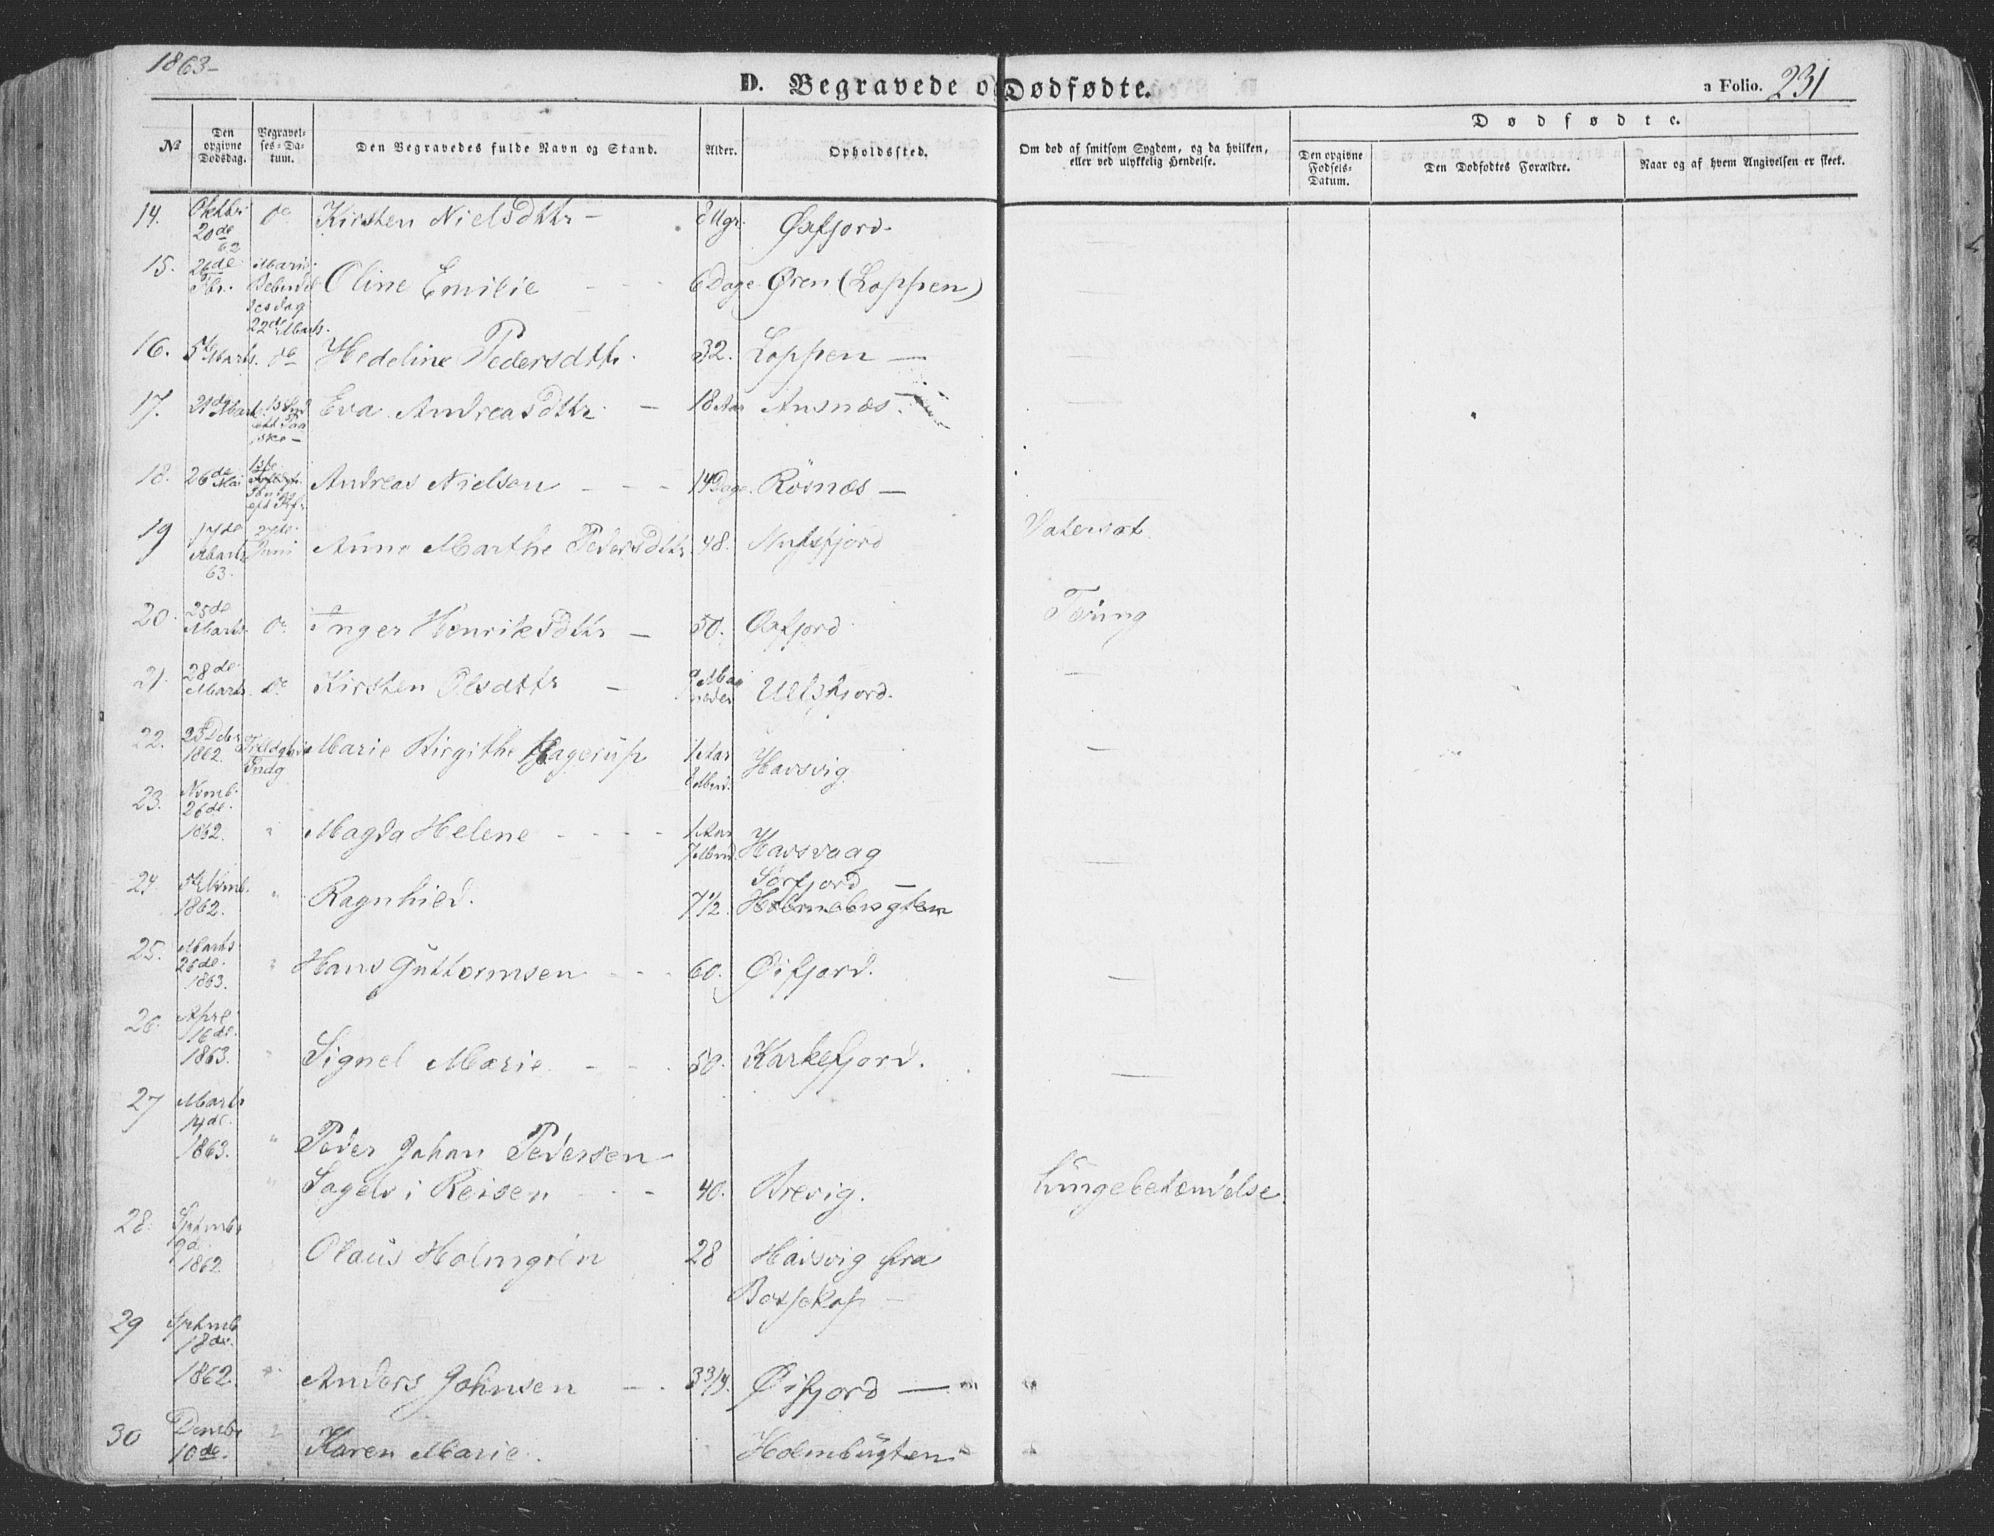 1863-
D. Begravede o Dødfødte.
a Folio. 231
№ Den opgivne Dødsdag. Begravelses-Datum. Den Begravedes fulde Navn og Stand. Alder. Opholdssted. Om død af smitsom Sygdom, og da hvilken, eller ved ulykkelig Hendelse. Dødfødte.
Den opgivne Fødsels-Datum. Den Dødfødtes Forældre. Naar og af hvem Angivelsen er skeet.
14. Oktbr 20de 62 do Kirsten Nielsdttr - Øxfjord.
15. 26de Marie Bebudelsesdag 22de Marts. Oline Emilie - - 6 Dage Øren (Loppen)
16. 5te Marts. do Hedeline Pedersdttr. 32. Loppen —
17. 21de Mart Eva Andreasdttr. — 18 Aar Ansnæs.
18. 26de Mai Andreas Nielsen - - - 14 Dage. Rösnæs —
19 17de 63. 27de Juni Anne Marthe Pedersdttr. 48. Nufsfjord Vatersot.
20. 25de Marts. do Inger Henriksdttr — 50. Øxfjord Tæring
21. 28de Marts do Kirsten Olsdttr — Ulfsfjord. —
22. 1862. Marie Birgithe Hagerup 1 Aar Havsvig —
23. Novmb. 26de 1862. " Magda Helene - - - - 1 Aar 7 Mnd. Havsvaag —
24. 5te Novmb. 1862. " Ragnhild. 7½ Sørfjord — Holmebugten
25. Marts 26de 1863. " Hans Guttormsen - - - 60. Øifjord. —
26. April 16de 1863. " Signel Marie - - - 50. Karkefjord. —
27 Marts 14de 1863. " Peder Johan Pedersen
" Sagelv i Reisen - - - 40. Brevig. Lungebetændelse.
28. Sptmbr 9de 1862 Olaus Holmgrén 28 Havsvig fra
Bossekop —
29 Sptmb 18de 1862. " Anders Johnsen — 3 3/4. Øifjord —
30 Decmbr 10de. " Karen Marie. Holmbugten